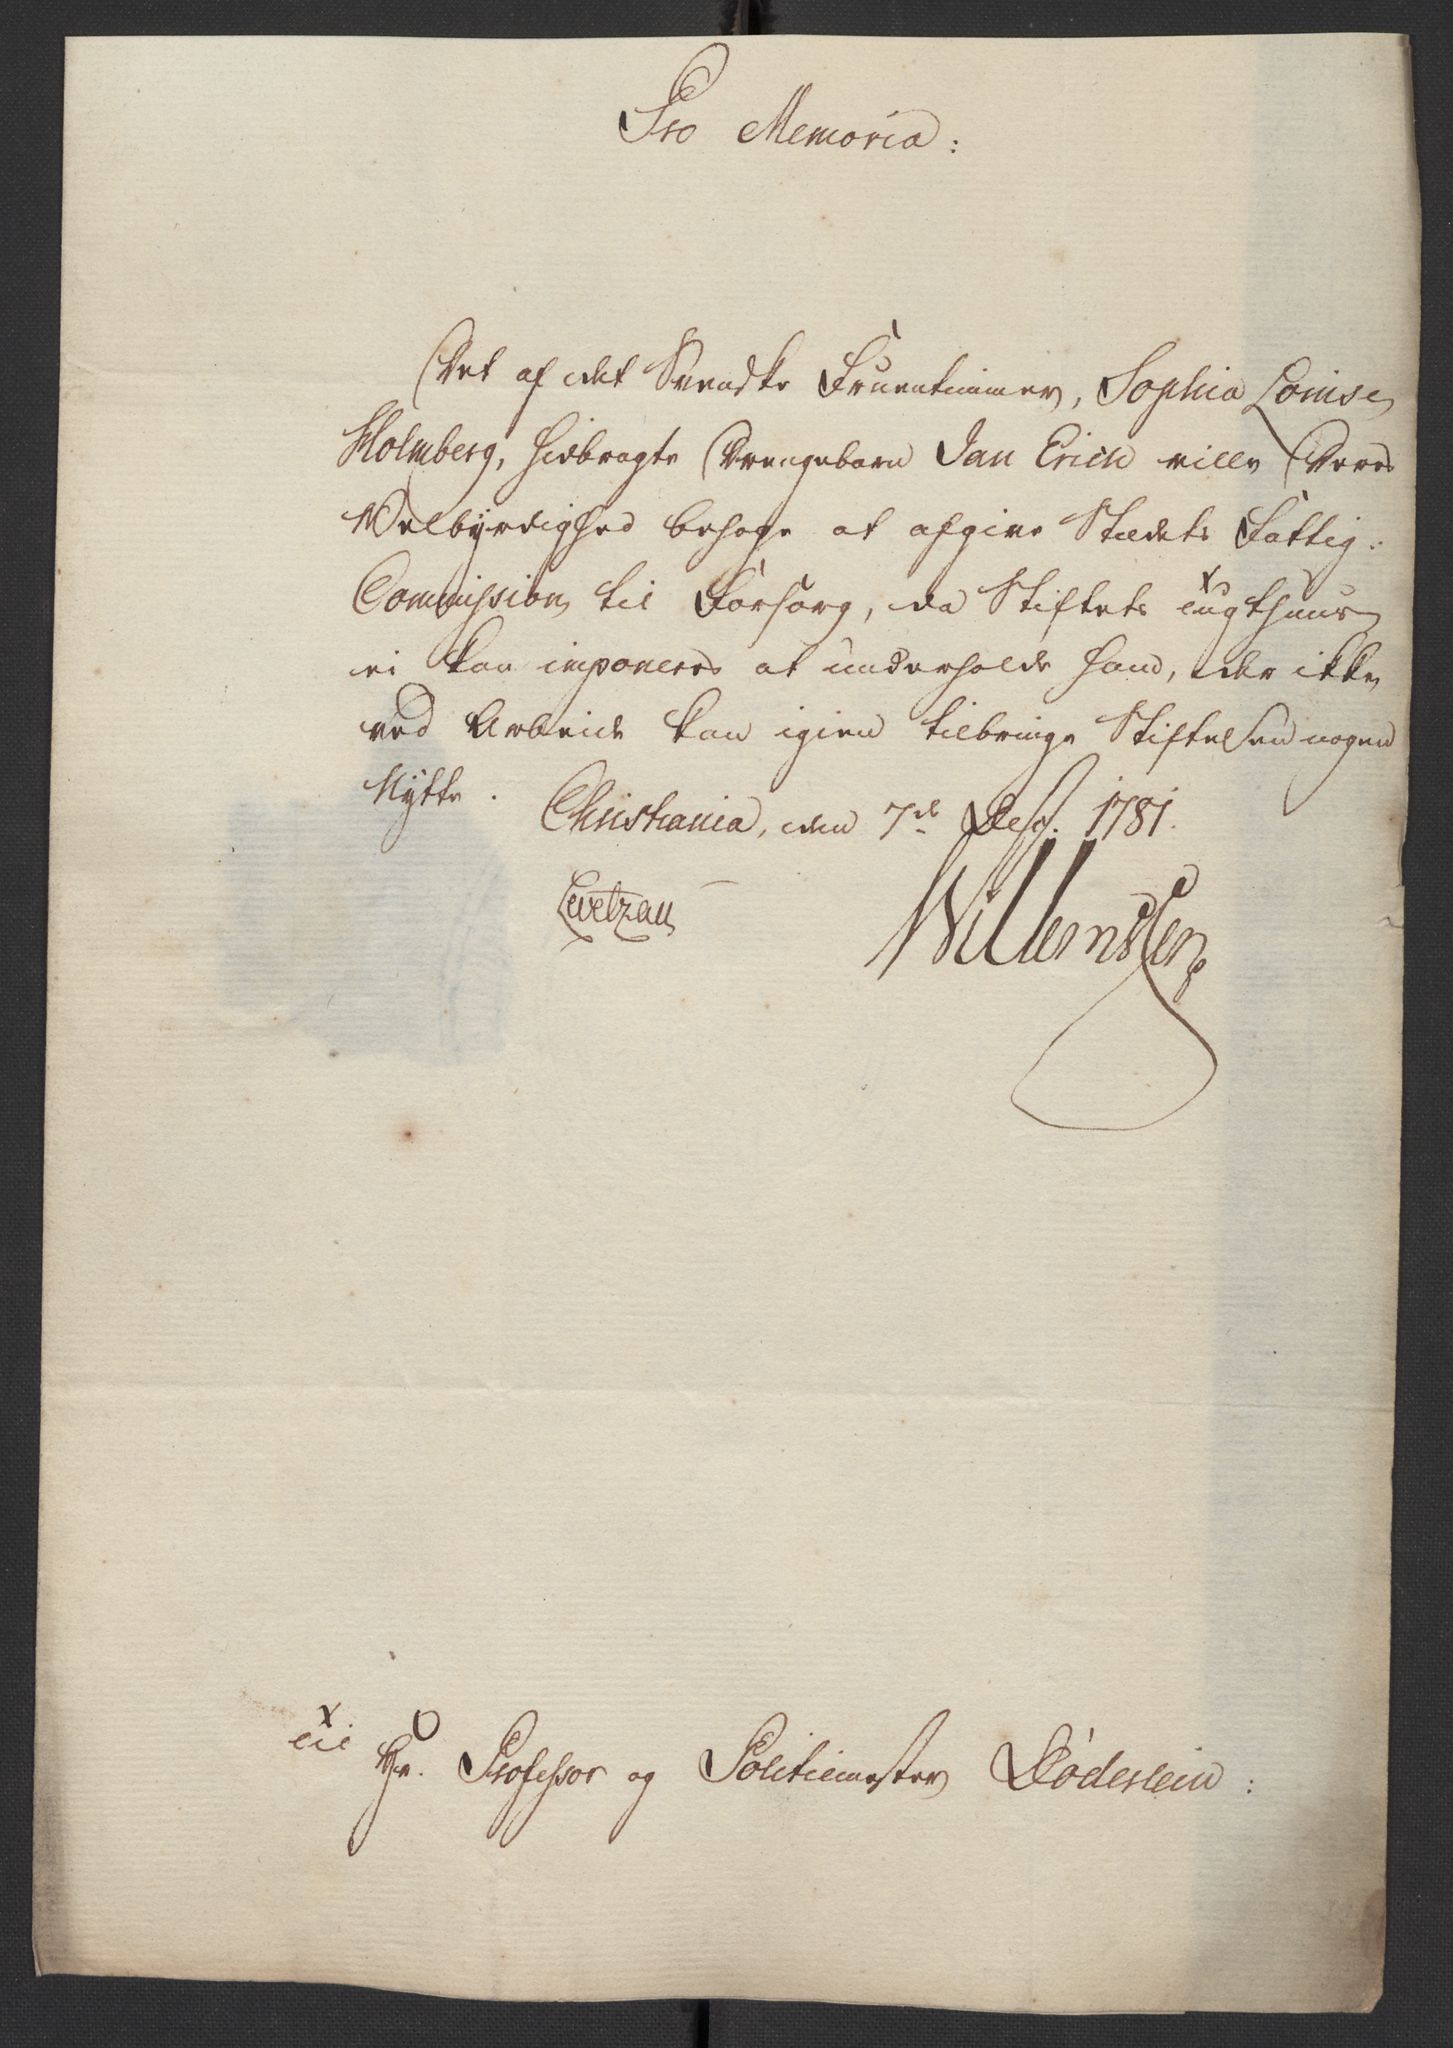 Pro Memoria:
Det af det Svendske Fruentimmer, Sophia Lovise
Holmberg, hidbragte Drengebarn Jan Erich ville Deres
Velbyrdighed behage at afgive Stædets Fattig-
Commission til Forsorg, da Stiftets tugthuus
ei kan imponeres at underholde ham, der ikke
ved Arbeide kan igien tilbringe Stiftelsen nogen
Nytte.
Christiania, den 7de Des. 1781.
Levetzau Willemssen
til
Hr. Professor og Politiemester Döderlein: